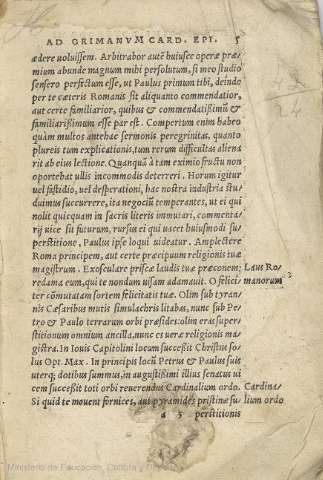 AD GRIMANVM CARD. EPI. 5
ædere uoluissem. Arbitrabor autē huiusce operæ præ-
mium abunde magnum mihi persolutum, si meo studio
sensero perfectum esse, ut Paulus primum tibi, deinde
per te cæteris Romanis sit aliquanto commendatior,
aut certe familiarior, quibus & commendatissimū &
familiarissimum esse par est. Compertum enim habeo
quàm multos antehac sermonis peregrinitas, quanto
plureis tum explicationis, tum rerum difficultas aliena
rit ab eius lectione. Quanquā à tam eximio fructu non
oportebat ullis incommodis deterreri. Horum igitur
uel fastidio, uel desperationi, hac nostra industria stu-
duimus succurrere, ita negociū temperantes, ut ei qui
nolit quicquam in sacris literis immutari, commenta-
rij uice sit futurum, rursus ei qui uacet huiusmodi su-
perstitione, Paulus ipse loqui uideatur. Amplectere
Roma principem, aut certe præcipuum religionis tuæ
magistrum. Exosculare priscæ laudis tuæ præconem; Laus Ro-
redama eum, qui te nondum uisam adamauit. O felici- manorum
ter cōmutatam sortem felicitatis tuæ. Olim sub tyran-
nis Cæsaribus mutis simulachris litabas, nunc sub Pe-
tro & Paulo terrarum orbi præsides: olim eras super-
stitionum omnium ancilla, nunc es uera religionis ma-
gistra. In Iouis Capitolini locum successit Christus so-
lus Opt. Max. In principis locū Petrus & Paulus suis
uterq; dotibus summus, in augustissimi illius senatus ui
cem successit toti orbi reuerendus Cardinalium ordo. Cardina-
Si quid te mouent fornices, aut pyramides pristinæ su lium ordo
a 5 perstitionis
Ministerio de Educación, Cultura y Deporte